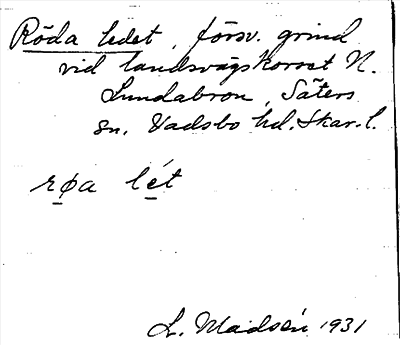 Röda ledet, försv. grind
vid landsvägskorset N.
Lundabron, Säters
sn. Vadsbo hd. Skar. l.
rø̱a lé̱t
L. Madsén 1931